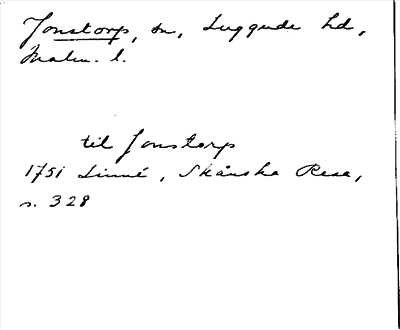 Jonstorp, sn, Luggude hd,
Malm. l.
til Jonstorp
1751 Linné, Skånska Resa,
s. 328